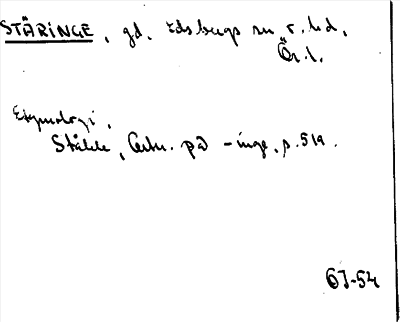 STÄRINGE, gd. Edsbergs sn o. hd,
Ör. l.
Etymologi.
Ståhle, Ortn. på -inge, p. 519.
OJ-54